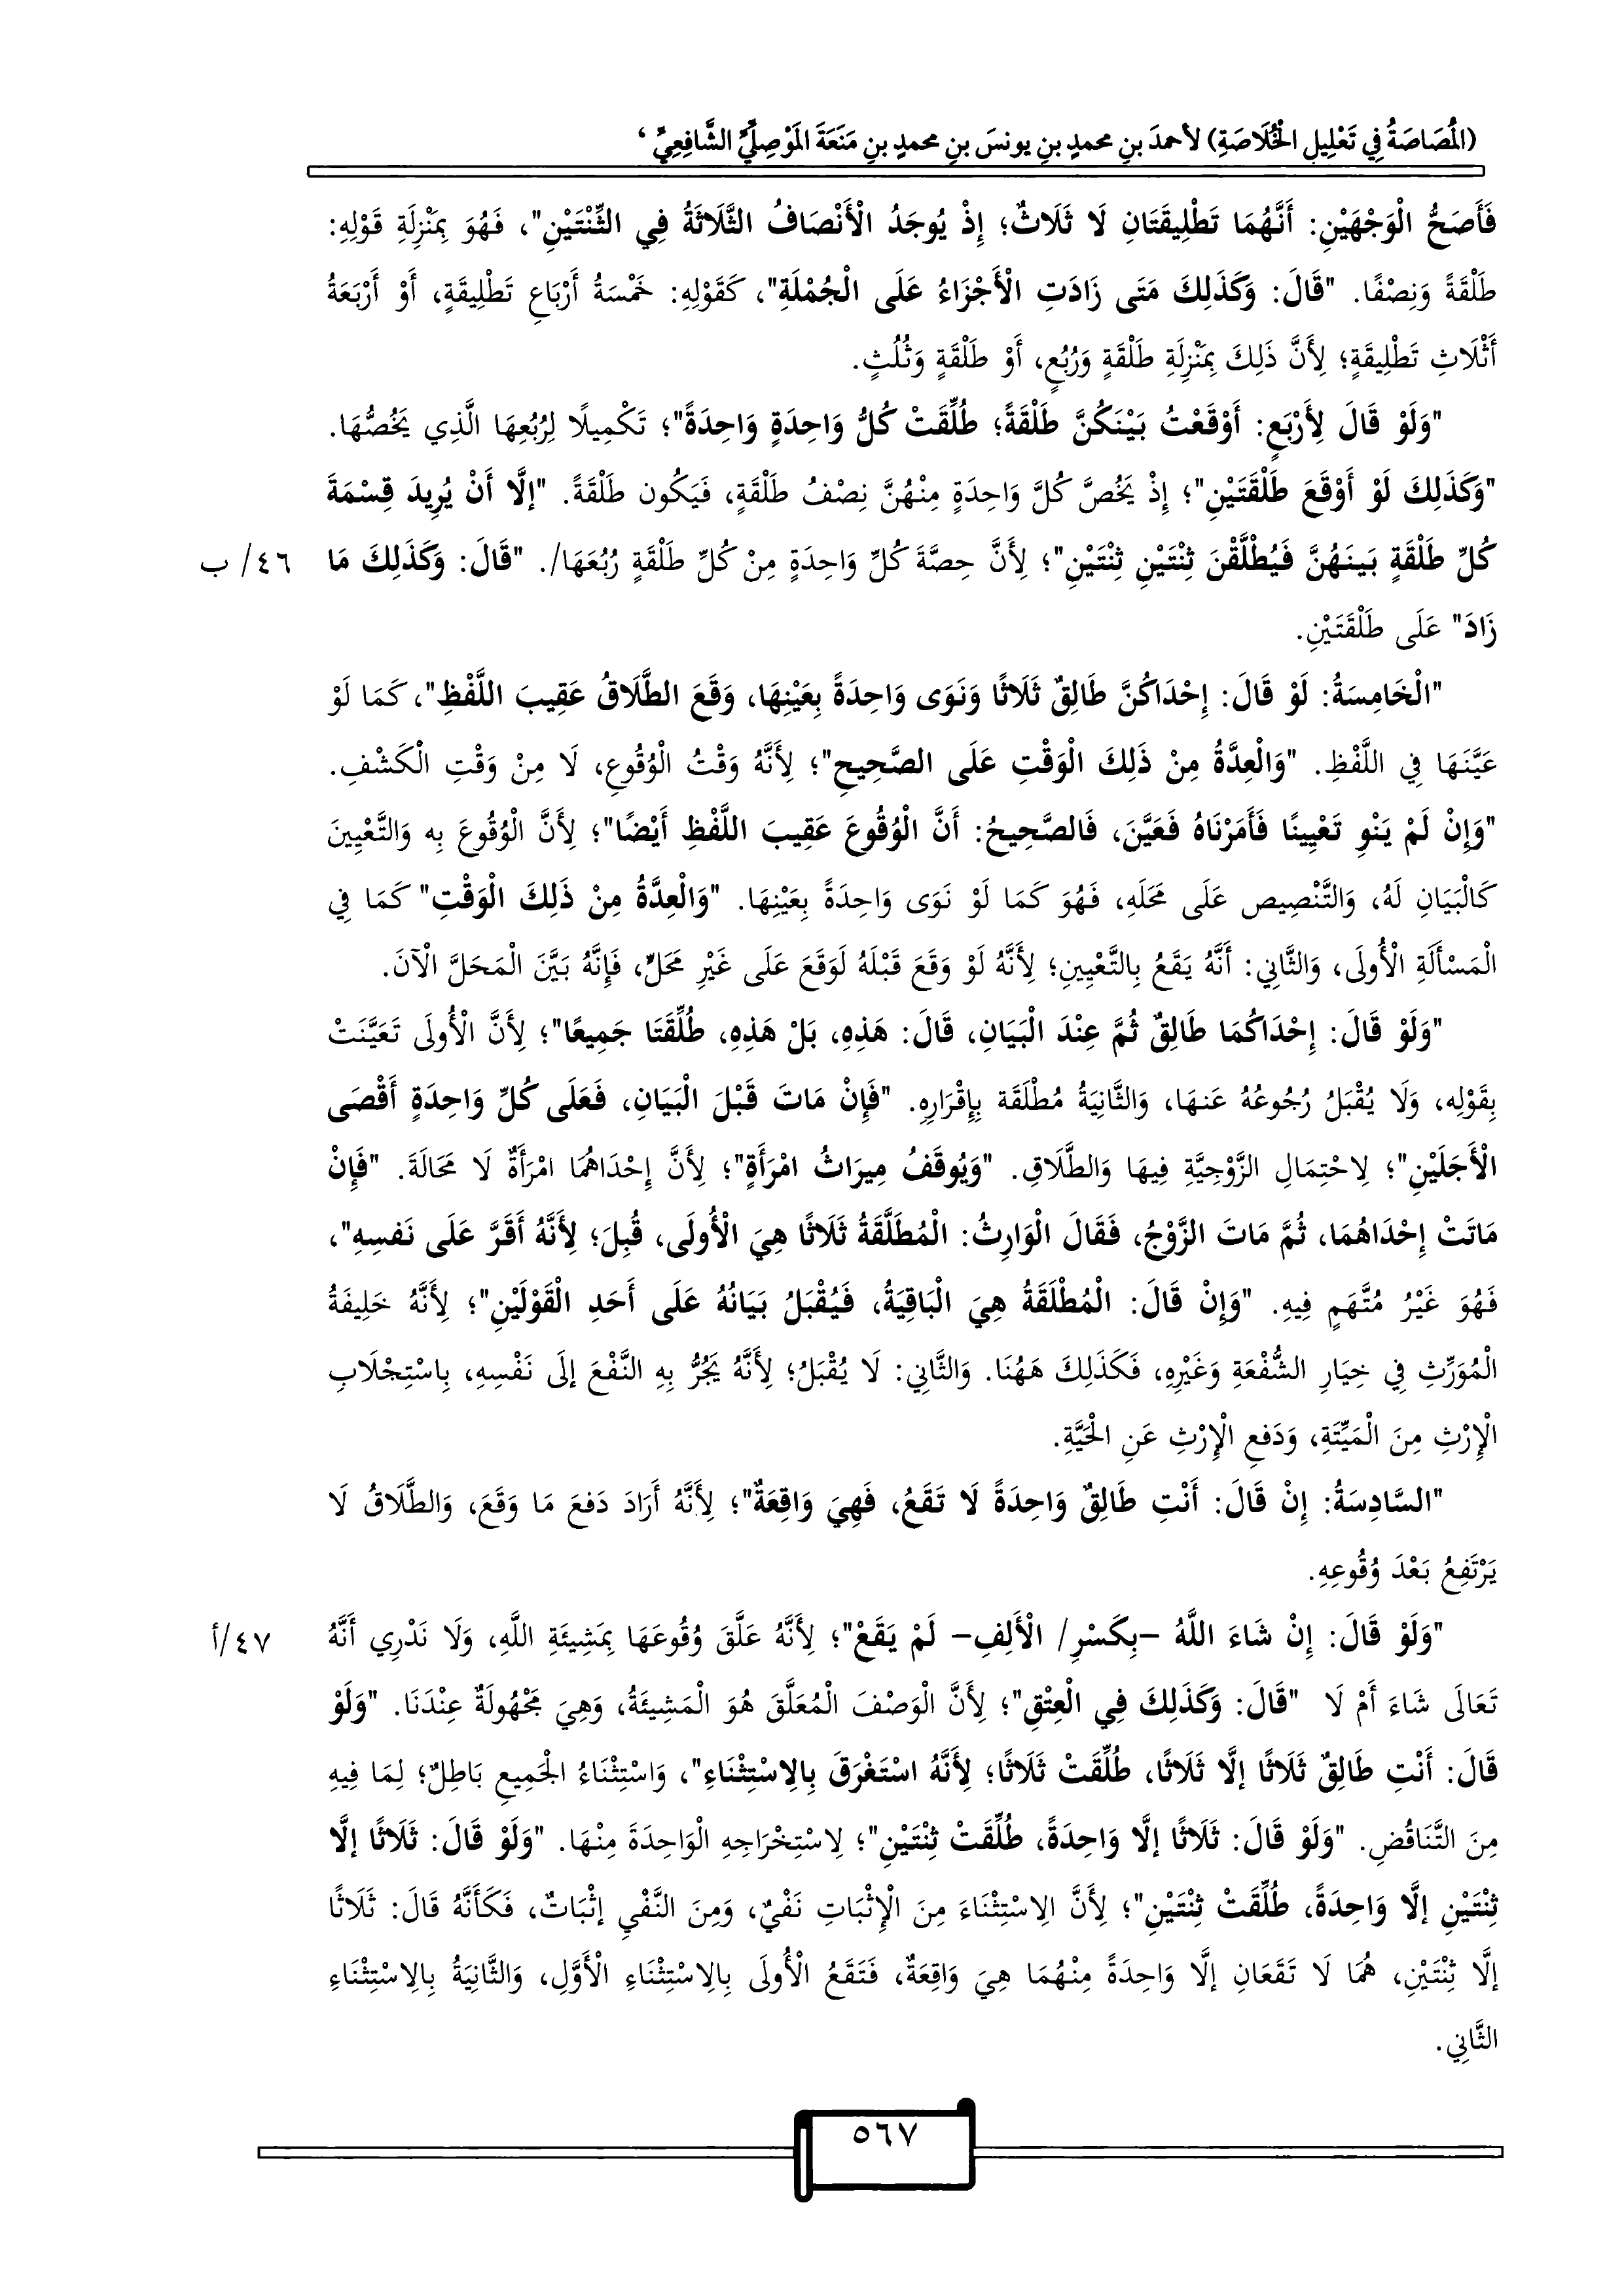 (الْمُصَاصَةُ فِي تَعْلِيلِ الْخُلَاصَةِ) لأحمدَ بنِ محمدٍ بنِ يونسَ بنِ محمدٍ بنِ مَنَعَةَ الْمَوْصِلِيِّ الشَّافِعِيِّ ‘
فَأَصَحُّ الْوَجْهَيْنِ: أَنَّهُمَا تَطْلِيقَتَانِ لَا ثَلَاثٌ؛ إِذْ يُوجَدُ الْأَنْصَافُ الثَّلَاثَةُ فِي الثِّنْتَيْنِ"، فَهُوَ بِمَنْزِلَةِ قَوْلِهِ:
طَلْقَةً وَنِصْفًا. "قَالَ: وَكَذَلِكَ مَتَى زَادَتِ الْأَجْزَاءُ عَلَى الْجُمْلَةِ"، كَقَوْلِهِ: خَمْسَةُ أَرْبَاعِ تَطْلِيقَةٍ، أَوْ أَرْبَعَةُ
أَثْلَاثِ تَطْلِيقَةٍ؛ لِأَنَّ ذَلِكَ بِمَنْزِلَةِ طَلْقَةٍ وَرُبُعٍ، أَوْ طَلْقَةٍ وَثُلُثٍ.
"وَلَوْ قَالَ لِأَرْبَعٍ: أَوْقَعْتُ بَيْنَكُنَّ طَلْقَةً؛ طُلِّقَتْ كُلُّ وَاحِدَةٍ وَاحِدَةً"؛ تَكْمِيلًا لِرُبُعِهَا الَّذِي يَخُصُّهَا.
"وَكَذَلِكَ لَوْ أَوْقَعَ طَلْقَتَيْنِ"؛ إِذْ يَخُصَّ كُلَّ وَاحِدَةٍ مِنْهُنَّ نِصْفُ طَلْقَةٍ، فَيَكُون طَلْقَةً. "إِلَّا أَنْ يُرِيدَ قِسْمَةَ
كُلِّ طَلْقَةٍ بَينَهُنَّ فَيُطْلَّقْنَ ثِنْتَيْنِ ثِنْتَيْنِ"؛ لِأَنَّ حِصَّةَ كُلِّ وَاحِدَةٍ مِنْ كُلِّ طَلْقَةٍ رُبُعَهَا/. "قَالَ: وَكَذَلِكَ مَا ٤٦/ ب
زَادَ" عَلَى طَلْقَتَيْنِ.
"الْخَامِسَةُ: لَوْ قَالَ: إِحْدَاكُنَّ طَالِقٌ ثَلَاثًا وَنَوَى وَاحِدَةً بِعَيْنِهَا، وَقَعَ الطَّلَاقُ عَقِيبَ اللَّفْظِ"، كَمَا لَوْ
عَيَّنَهَا فِي اللَّفْظِ. "وَالْعِدَّةُ مِنْ ذَلِكَ الْوَقْتِ عَلَى الصَّحِيحِ"؛ لِأَنَّهُ وَقْتُ الْوُقُوعِ، لَا مِنْ وَقْتِ الْكَشْفِ.
"وَإِنْ لَمْ يَنْوِ تَعْيِينًا فَأَمَرْنَاهُ فَعَيَّنَ، فَالصَّحِيحُ: أَنَّ الْوُقُوعَ عَقِيبَ اللَّفْظِ أَيْضًا"؛ لِأَنَّ الْوُقُوعَ بِه وَالتَّعْيِينَ
كَالْبَيَانِ لَهُ، وَالتَّنْصِيص عَلَى مَحَلَهِ، فَهُوَ كَمَا لَوْ نَوَى وَاحِدَةً بِعَيْنِهَا. "وَالْعِدَّةُ مِنْ ذَلِكَ الْوَقْتِ" كَمَا فِي
الْمَسْأَلَةِ الْأُولَى، وَالثَّانِي: أَنَّهُ يَقَعُ بِالتَّعْيِينِ؛ لِأَنَّهُ لَوْ وَقَعَ قَبْلَهُ لَوَقَعَ عَلَى غَيْرِ مَحَلٍّ، فَإِنَّهُ بَيَّنَ الْمَحَلَّ الْآنَ.
"وَلَوْ قَالَ: إِحْدَاكُمَا طَالِقٌ ثُمَّ عِنْدَ الْبَيَانِ، قَالَ: هَذِهِ، بَلْ هَذِهِ، طُلِّقَتَا جَمِيعًا"؛ لِأَنَّ الْأُولَى تَعَيَّنَتْ
بِقَوْلِه، وَلَا يُقْبَلُ رُجُوعُهُ عَنهَا، وَالثَّانِيَةُ مُطْلَقَة بِإِقْرَارِهِ. "فَإِنْ مَاتَ قَبْلَ الْبَيَانِ، فَعَلَى كُلِّ وَاحِدَةٍ أَقْصَى
الْأَجَلَيْنِ"؛ لِاحْتِمَالِ الزَّوْجِيَّةِ فِيهَا وَالطَّلَاقِ. "وَيُوقَفُ مِيرَاثُ امْرَأَةٍ"؛ لِأَنَّ إِحْدَاهُمَا امْرَأَةٌ لَا مَحَالَةَ. "فَإِنْ
مَاتَتْ إِحْدَاهُمَا، ثُمَّ مَاتَ الزَّوْجُ، فَقَالَ الْوَارِثُ: الْمُطَلَّقَةُ ثَلَاثًا هِيَ الْأُولَى، قُبِلَ؛ لِأَنَّهُ أَقَرَّ عَلَى نَفسِهِ"،
فَهُوَ غَيْرُ مُتَّهَمٍ فِيهِ. "وَإِنْ قَالَ: الْمُطْلَقَةُ هِيَ الْبَاقِيَةُ، فَيُقْبَلُ بَيَانُهُ عَلَى أَحَدِ الْقَوْلَيْنِ"؛ لِأَنَّهُ خَلِيفَةُ
الْمُوَرِّثِ فِي خِيَارِ الشُّفْعَةِ وَغَيْرِهِ، فَكَذَلِكَ هَهُنَا. وَالثَّانِي: لَا يُقْبَلُ؛ لِأَنَّهُ يَجُرُّ بِهِ النَّفْعَ إِلَى نَفْسِهِ، بِاسْتِجْلَابِ
الْإِرْثِ مِنَ الْمَيِّتَةِ، وَدَفعِ الْإِرْثِ عَنِ الْحَيَّةِ.
"السَّادِسَةُ: إِنْ قَالَ: أَنْتِ طَالِقٌ وَاحِدَةً لَا تَقَعُ، فَهِيَ وَاقِعَةٌ"؛ لِأَنَّهُ أَرَادَ دَفعَ مَا وَقَعَ، وَالطَّلَاقُ لَا
يَرْتَفِعُ بَعْدَ وُقُوعِهِ.
"وَلَوْ قَالَ: إِنْ شَاءَ اللَّهُ –بِكَسْرِ/ الْأَلِفِ– لَمْ يَقَعْ"؛ لِأَنَّهُ عَلَّقَ وُقُوعَهَا بِمَشِيئَةِ اللَّهِ، وَلَا نَدْرِي أَنَّهُ ٤٧/أ
تَعَالَى شَاءَ أَمْ لَا "قَالَ: وَكَذَلِكَ فِي الْعِتْقِ"؛ لِأَنَّ الْوَصْفَ الْمُعَلَّقَ هُوَ الْمَشِيئَةُ، وَهِيَ مَجْهُولَةٌ عِنْدَنَا. "وَلَوْ
قَالَ: أَنْتِ طَالِقٌ ثَلَاثًا إِلَّا ثَلَاثًا، طُلِّقَتْ ثَلَاثًا؛ لِأَنَّهُ اسْتَغْرَقَ بِالِاسْتِثْنَاءِ"، وَاسْتِثْنَاءُ الْجَمِيعِ بَاطِلٌ؛ لِمَا فِيهِ
مِنَ التَّنَاقُضِ. "وَلَوْ قَالَ: ثَلَاثًا إِلَّا وَاحِدَةً، طُلِّقَتْ ثِنْتَيْنِ"؛ لِاسْتِخْرَاجِهِ الْوَاحِدَةَ مِنْهَا. "وَلَوْ قَالَ: ثَلَاثًا إِلَّا
ثِنْتَيْنِ إِلَّا وَاحِدَةً، طُلِّقَتْ ثِنْتَيْنِ"؛ لِأَنَّ الِاسْتِثْنَاءَ مِنَ الْإِثْبَاتِ نَفْيٌ، وَمِنَ النَّفْيِ إِثْبَاتٌ، فَكَأَنَّهُ قَالَ: ثَلَاثًا
إِلَّا ثِنْتَيْنِ، هُمَا لَا تَقَعَانِ إِلَّا وَاحِدَةً مِنْهُمَا هِيَ وَاقِعَةٌ، فَتَقَعُ الْأُولَى بِالِاسْتِثْنَاءِ الْأَوَّلِ، وَالثَّانِيَةُ بِالِاسْتِثْنَاءِ
الثَّانِي.
٥٦٧